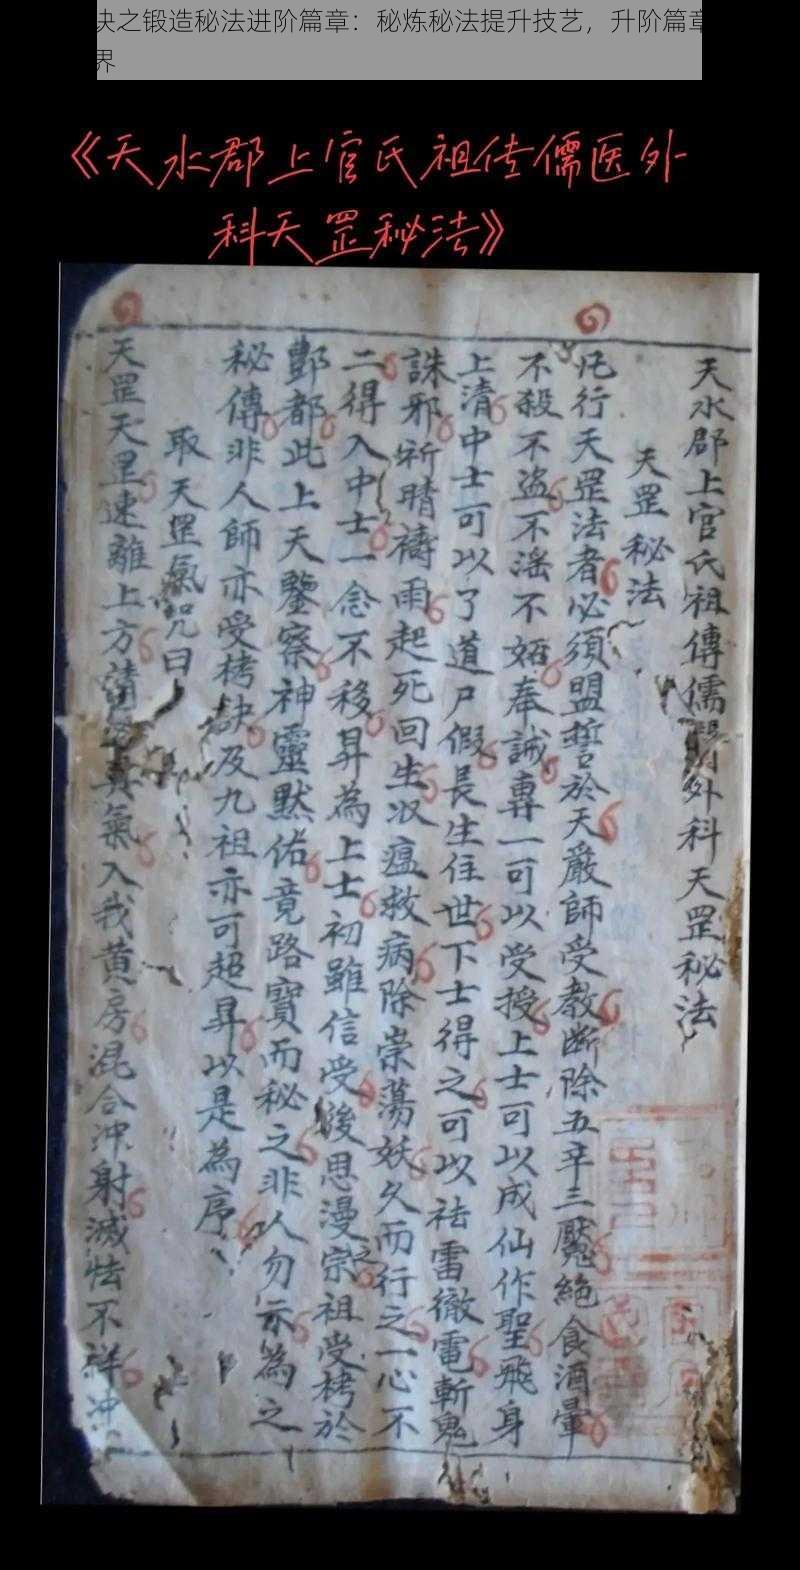 决之锻造秘法进阶篇章：秘炼秘法提升技艺，升阶篇章
界
《天水郡上官氏祖传儒医外
科天罡秘法》
天水郡上官氏祖傳儒醫外科天罡秘法
天罡秘法
凡行天罡法者必須盟誓於天嚴師受教斷除五辛三魘絕食酒暈
不殺不盗不滛不妬奉誠專一可以受授上士可以成仙作聖飛身
上清中士可以了道尸假長生住世下士得之可以祛雷徹電斬鬼
誅邪祈晴禱雨起死回生收瘟救病除祟蕩妖久而行之一心不
二得入中士一念不移昇為上士初雖信受後思漫之宗祖受栲於
酆都此上天鑒察神靈默佑竟路寶而秘之非人勿示為之
秘傳非人師亦受栲缺及九祖亦可超昇以是為序
取天罡氣咒曰
天罡天罡速離上方請 真氣入我黄房混合沖射滅怯不祥沖